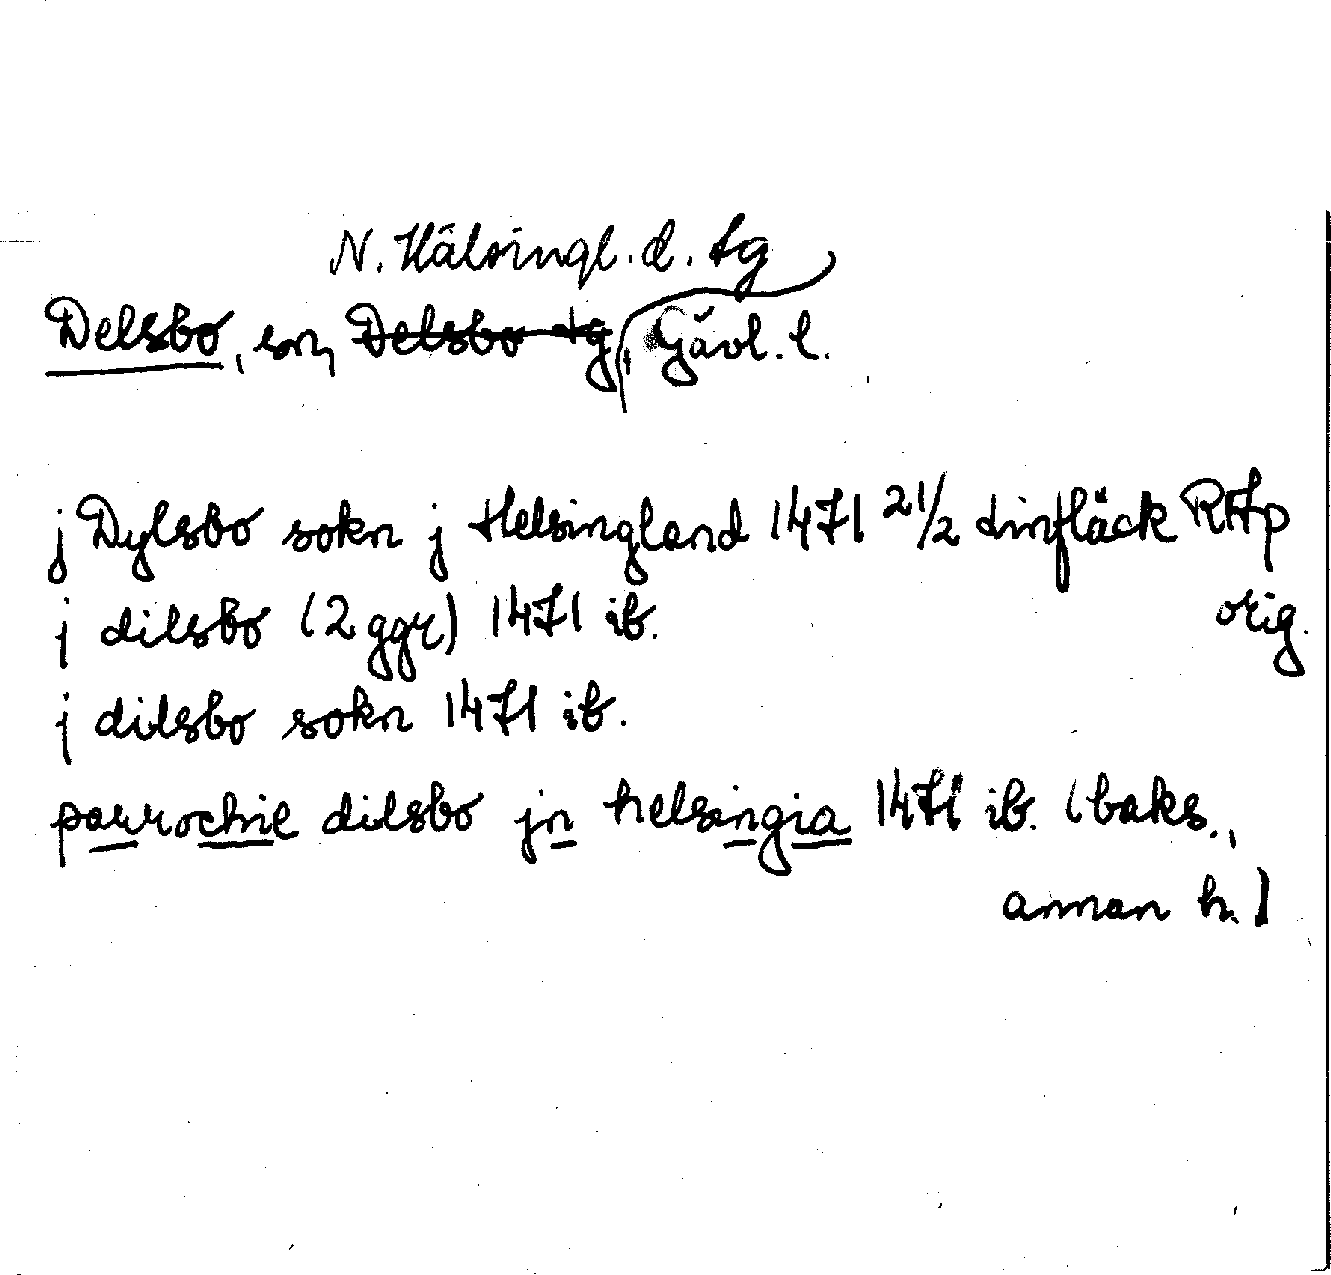 N. Hälsingl. d. tg
Delsbo, sn, Delsbo tg, Gävl. l.
j Dylsbo sokn j Helsingland 1471 2 1/2 RAp
orig.
j dilsbo (2 ggr) 1471 ib.
j dilsbo sokn 1471 ib.
parrochie dilsbo jn helsingia 1471 ib. (baks.,
annan h.)